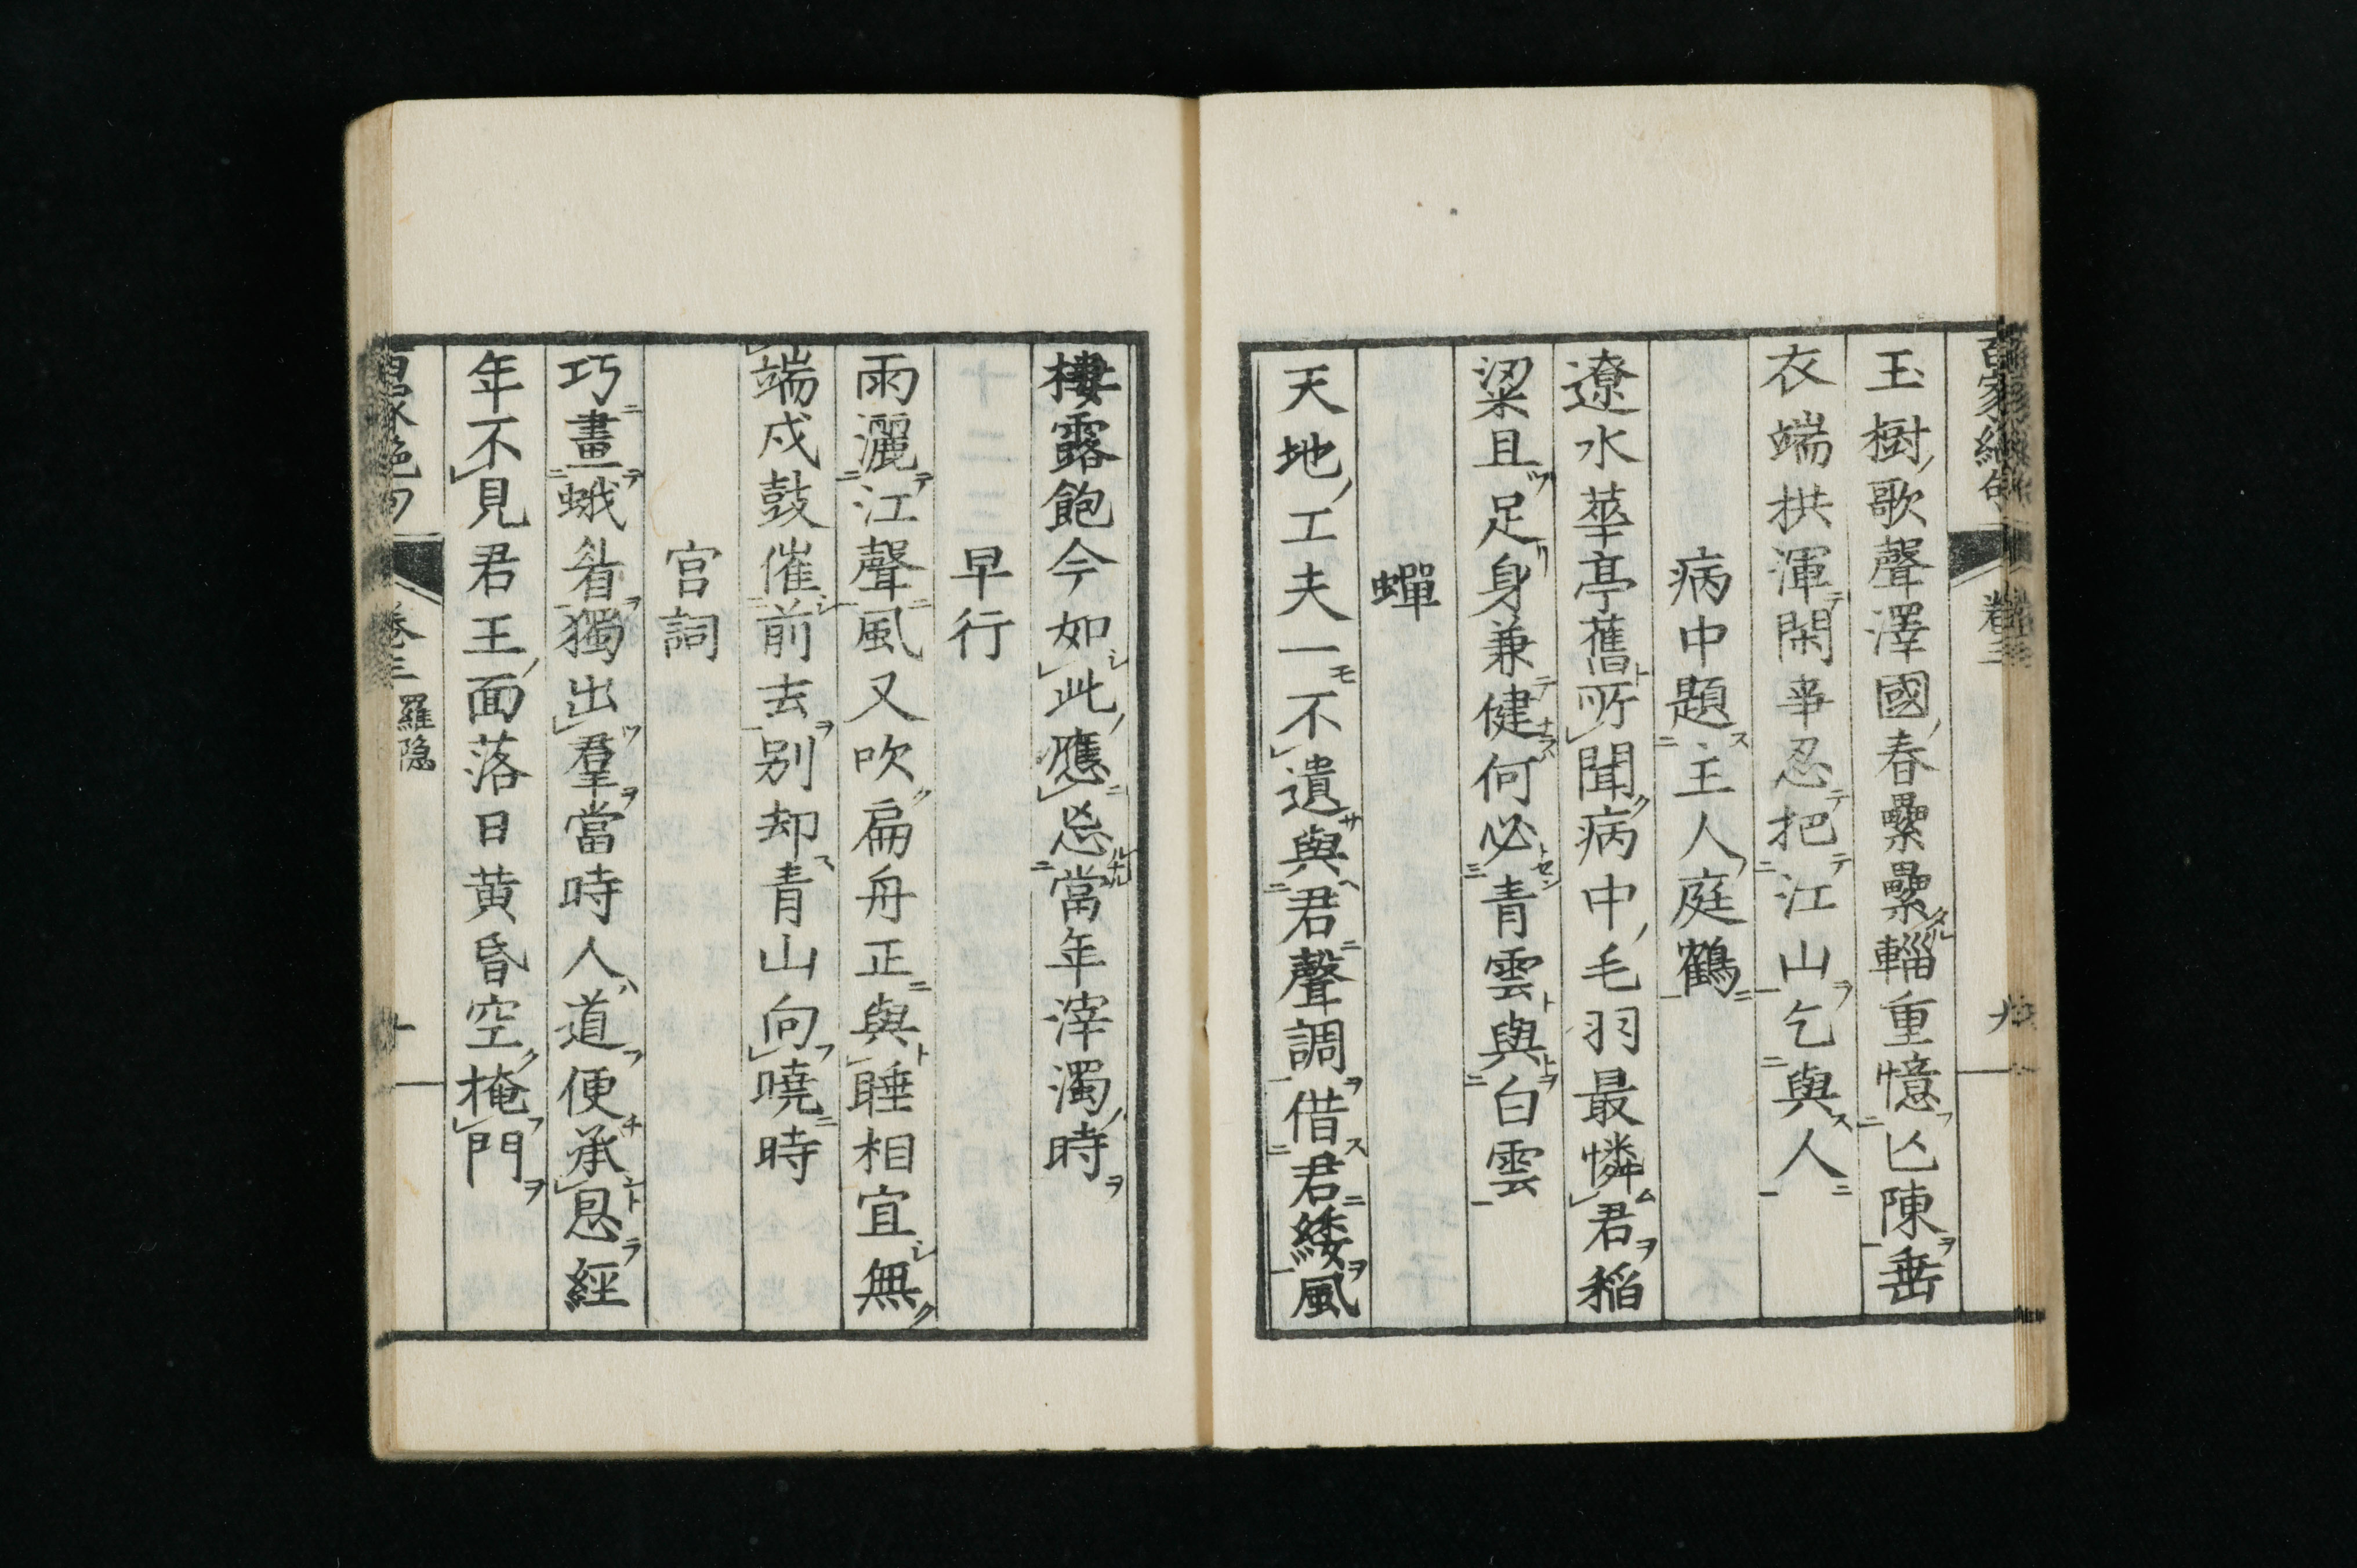 玉樹歌聲澤國春纍纍輜重憶亾陳垂
衣端拱渾閑亊忍把江山乞與人
病中題主人庭鶴
遼水華亭舊所聞病中毛羽最憐君稻
粱且足身兼健何必青雲與白雲
蟬
天地工夫一不遺與君聲調借君緌風
棲露飽今如此應忘當年滓濁時
早行
雨灑江聲風又吹扁舟正與睡相宜無
端戍鼓催前去别却青山向曉時
宮詞
巧畫蛾眉獨出羣當時人道便承恩經
年不見君王面落日黄昏空掩門
卷三 羅隐